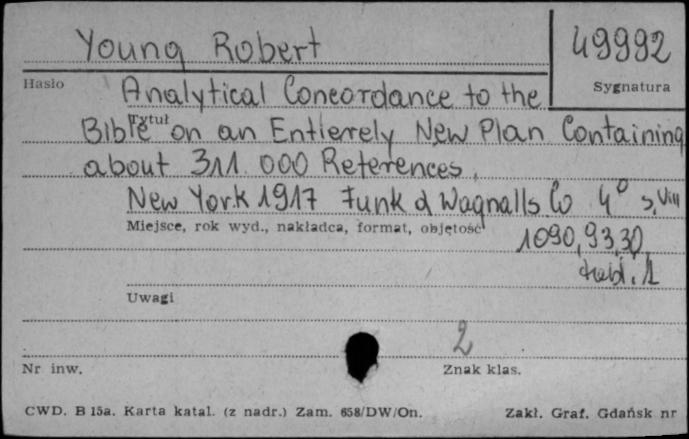 Young Robert
49992
Hasło
Sygnatura
Analytical Concordance to the
Tytuł
Bible on an Entierely New Plan Containing
about 311 000 References.
New York 1917 Funk & Wagnalls Co 4° s. VIII
Miejsce, rok wyd., nakładca, format, objętość
1090, 93, 30
tabl. 1
Uwagi
2
Nr inw.
Znak klas.
CWD. B 15a. Karta katal. (z nadr.) Zam. 658/DW/On.
Zakł. Graf. Gdańsk nr